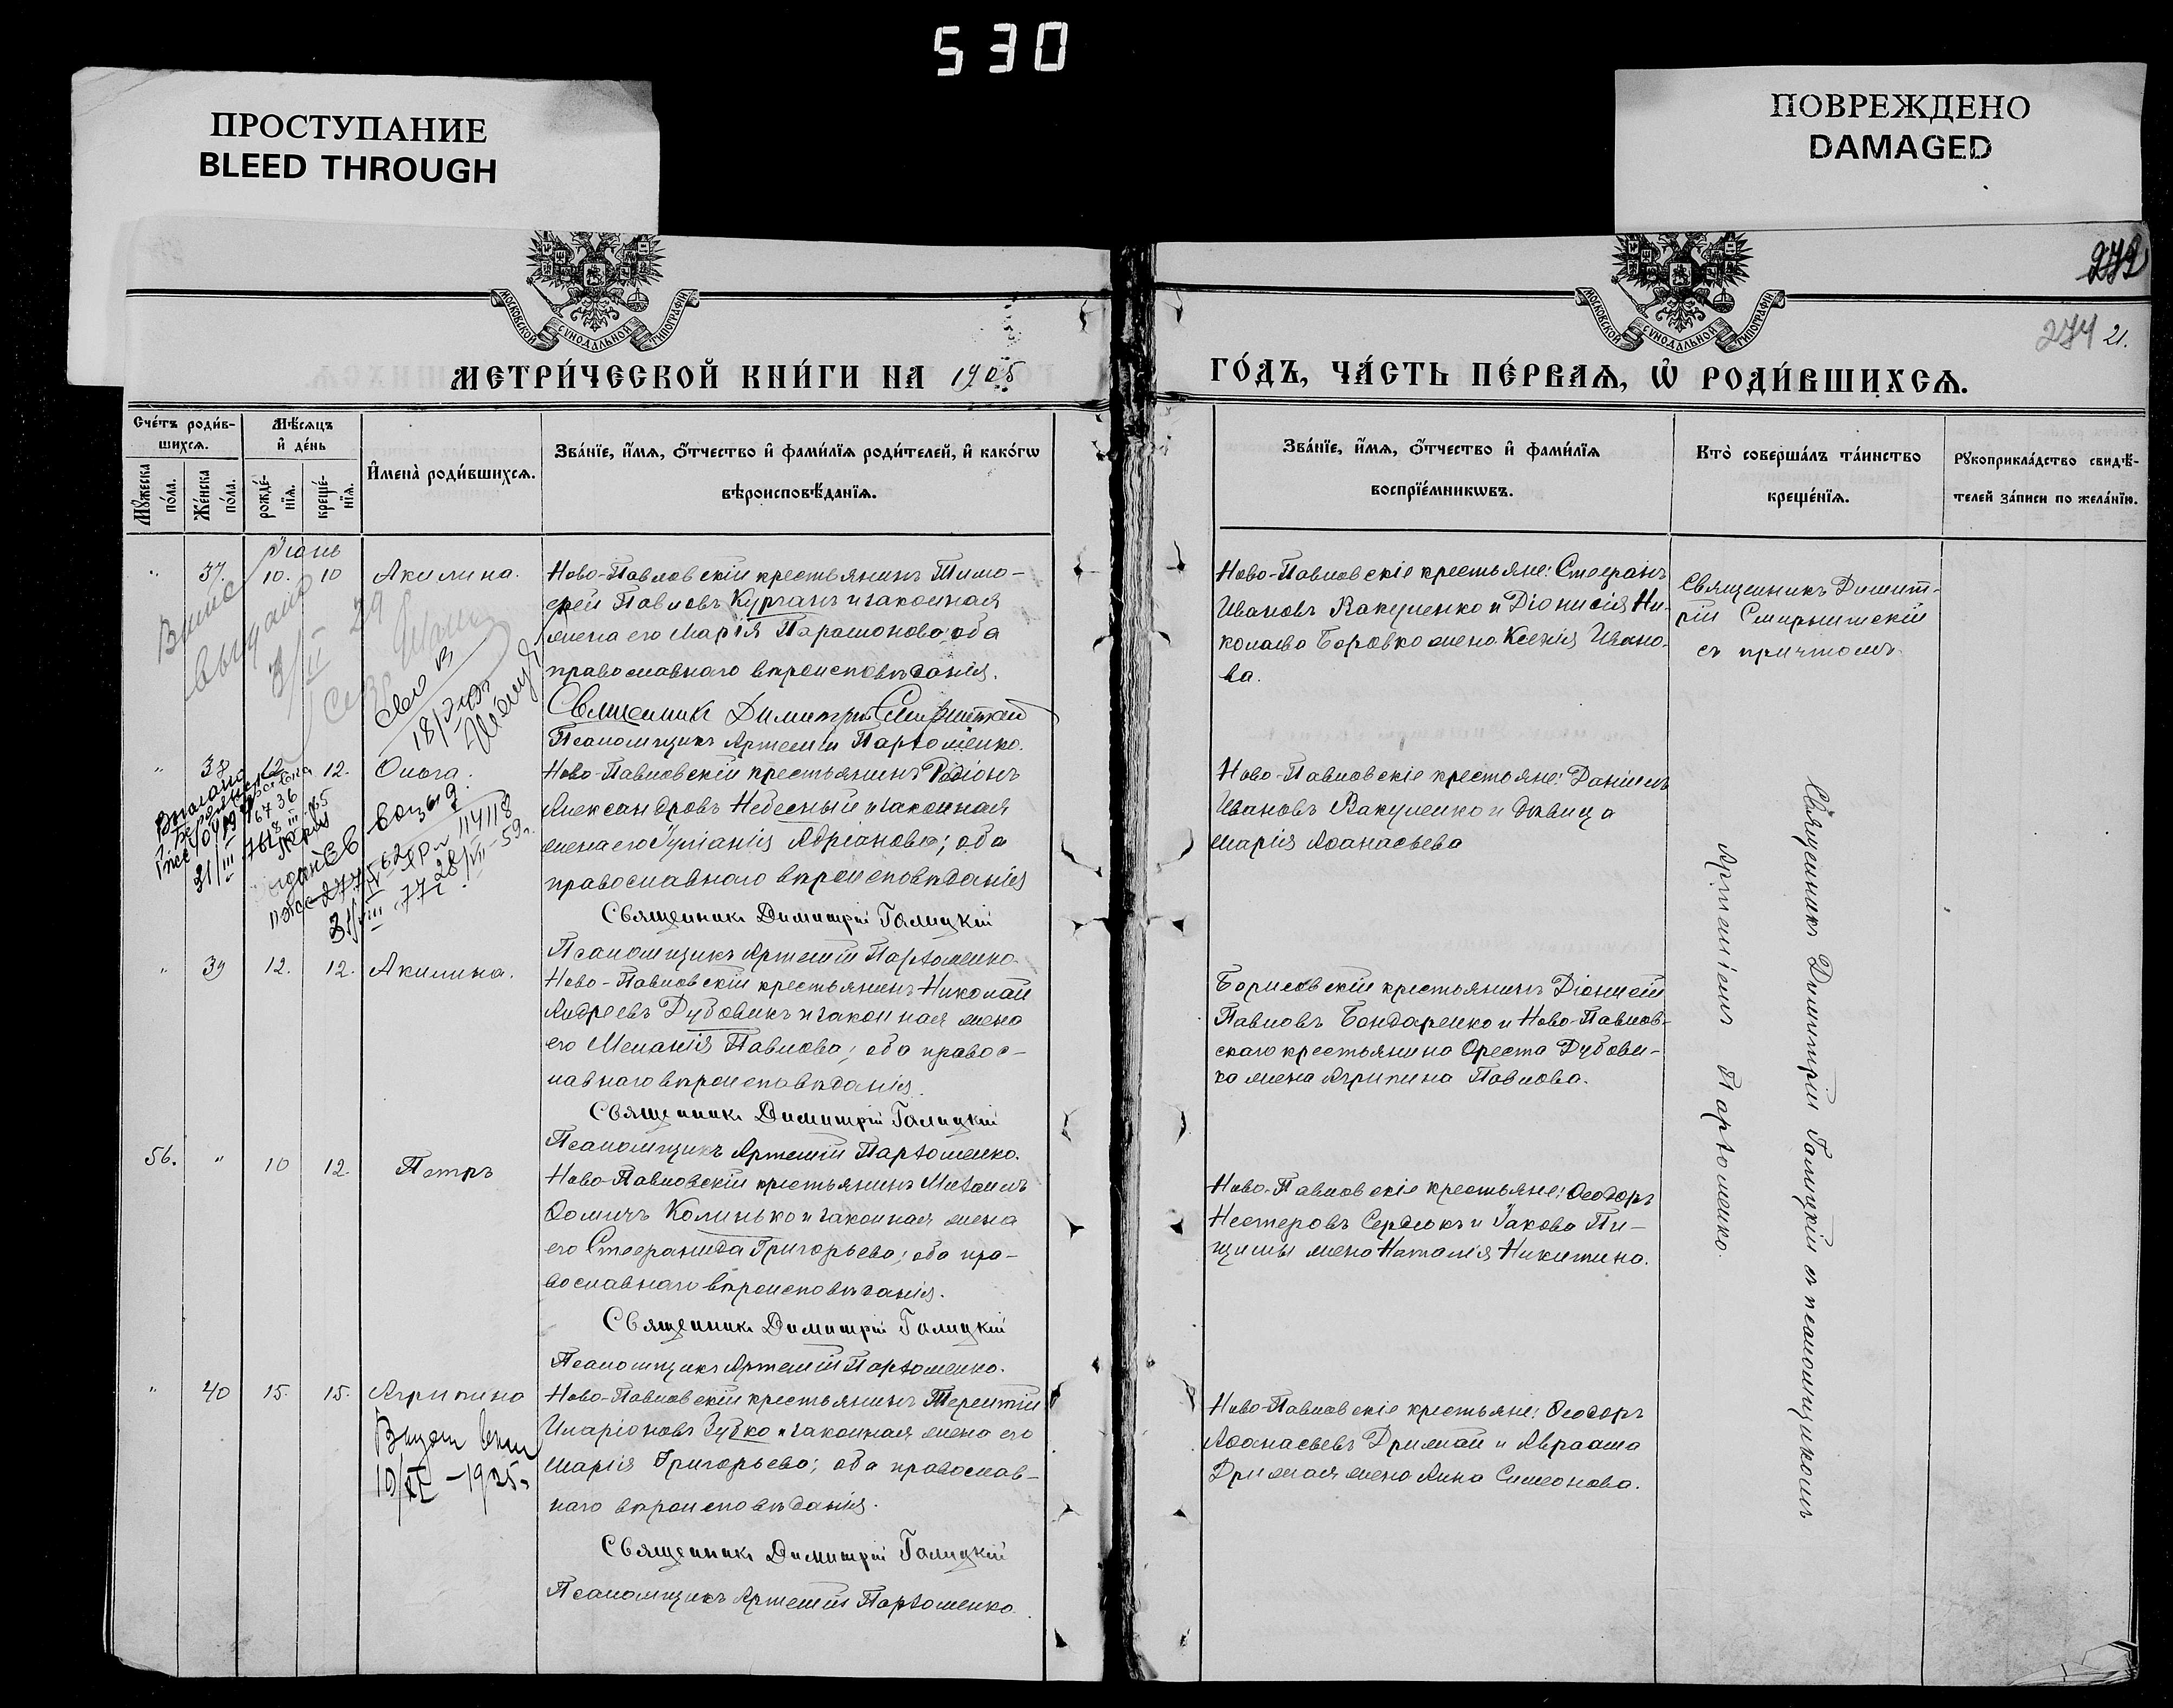 530
ПРОСТУПАНИЕ
BLEED THROUGH
ПОВРЕЖДЕНО
DAMAGED
МОСКОВСКОЙ СУНОДАЛЬНОЙ ТИПОГРАФІИ
МОСКОВСКОЙ СУНОДАЛЬНОЙ ТИПОГРАФІИ
272
274 21.
МЕТРИ́ЧЕСКОЙ КНИ́ГИ НА 1905
ГО́ДЪ, ЧА́СТЬ ПЕ́РВАѦ, Ѡ РОДИ́ВШИХСѦ.
Сче́тъ роди́в-
шихсѧ.
Мꙋжеска
по́ла.
Же́нска
по́ла.
Мѣ́сѧцъ
и҆ де́нь
рожде́-
нїѧ.
креще́-
нїѧ.
И҆мена̀ роди́вшихсѧ.
Зва́нїе, и҆́мѧ, ѻ҆́тчество и҆ фами́лїѧ роди́телей, и҆ како́гѡ
вѣроисповѣ́данїѧ.
Зва́нїе, и҆́мѧ, ѻ҆́тчество и҆ фами́лїѧ
воспрїе́мникѡвъ.
Кто̀ соверша́лъ та́инство
креще́нїѧ.
Рꙋкоприкла́дство свидѣ́-
телей за́писи по жела́нїю.
Іюнь
" 37. 10. 10 Акилина.
Ново-Павловскій крестьянинъ Тимо-
фей Павловъ Курганъ и законная
жена его Марія Парамонова; оба
православнаго вѣроисповѣданія.
Священникъ Димитрій
Псаломщикъ Артемій Пархоменко.
Ново-Павловскіе крестьяне: Стефанъ
Ивановъ Вакуленко и Діонисія Ни-
колаева Боровко жена Ксенія Ивано-
ва.
Священникъ Димит-
рій
съ причтомъ.
выдано
3/II 29
18/
" 38 12 12. Ольга.
Ново-Павловскій крестьянинъ Родіонъ
Александровъ Небесный и законная
жена его Іуліанія Адріанова; оба
православнаго вѣроисповѣданія
Священникъ Димитрій Галицкій
Псаломщикъ Артемій Пархоменко.
Ново-Павловскіе крестьяне: Даніилъ
Ивановъ Вакуленко и дѣвица
Марія Аѳанасьева
31/III
114118
28/VII-59г.
" 39 12. 12. Акилина.
Ново-Павловскій крестьянинъ Николай
Андреевъ Дубовикъ и законная жена
его Меланія Павлова; оба правос-
лавнаго вѣроисповѣданія.
Священникъ Димитрій Галицкій
Псаломщикъ Артемій Пархоменко.
Борисовскій крестьянинъ Діонисій
Павловъ Бондаренко и Ново-Павлов-
скаго крестьянина Ореста Дубови-
ка жена Агрипина Павлова.
56. " 10 12. Петръ
Ново-Павловскій крестьянинъ Михаилъ
Ѳомичъ Калинько и законная жена
его Стефанида Григорьева; оба пра-
вославнаго вѣроисповѣданія.
Священникъ Димитрій Галицкій
Псаломщикъ Артемій Пархоменко.
Ново-Павловскіе крестьяне: Ѳеодоръ
Нестеровъ Сердюкъ и Іакова Пи-
щиты жена Наталія Никитина.
" 40 15. 15. Агрипина
10/XI-1925г.
Ново-Павловскій крестьянинъ Терентій
Иларіоновъ Зубко и законная жена его
Марія Григорьева; оба православ-
наго вѣроисповѣданія.
Священникъ Димитрій Галицкій
Псаломщикъ Артемій Пархоменко.
Ново-Павловскіе крестьяне: Ѳеодоръ
Аѳанасьевъ Дримай и Авраама
Дримая жена Анна Симеонова.
Священникъ Димитрій Галицкій съ псаломщикомъ
Артеміемъ Пархоменко.